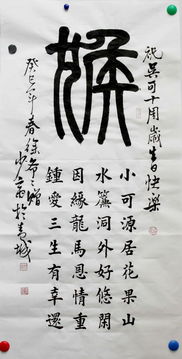 祝吴可十周歲生日快樂
猴
小可源居花果山
水簾洞外好悠閑
因緣龍馬恩情重
鍾愛三生有幸還
癸巳年春徐
於青城